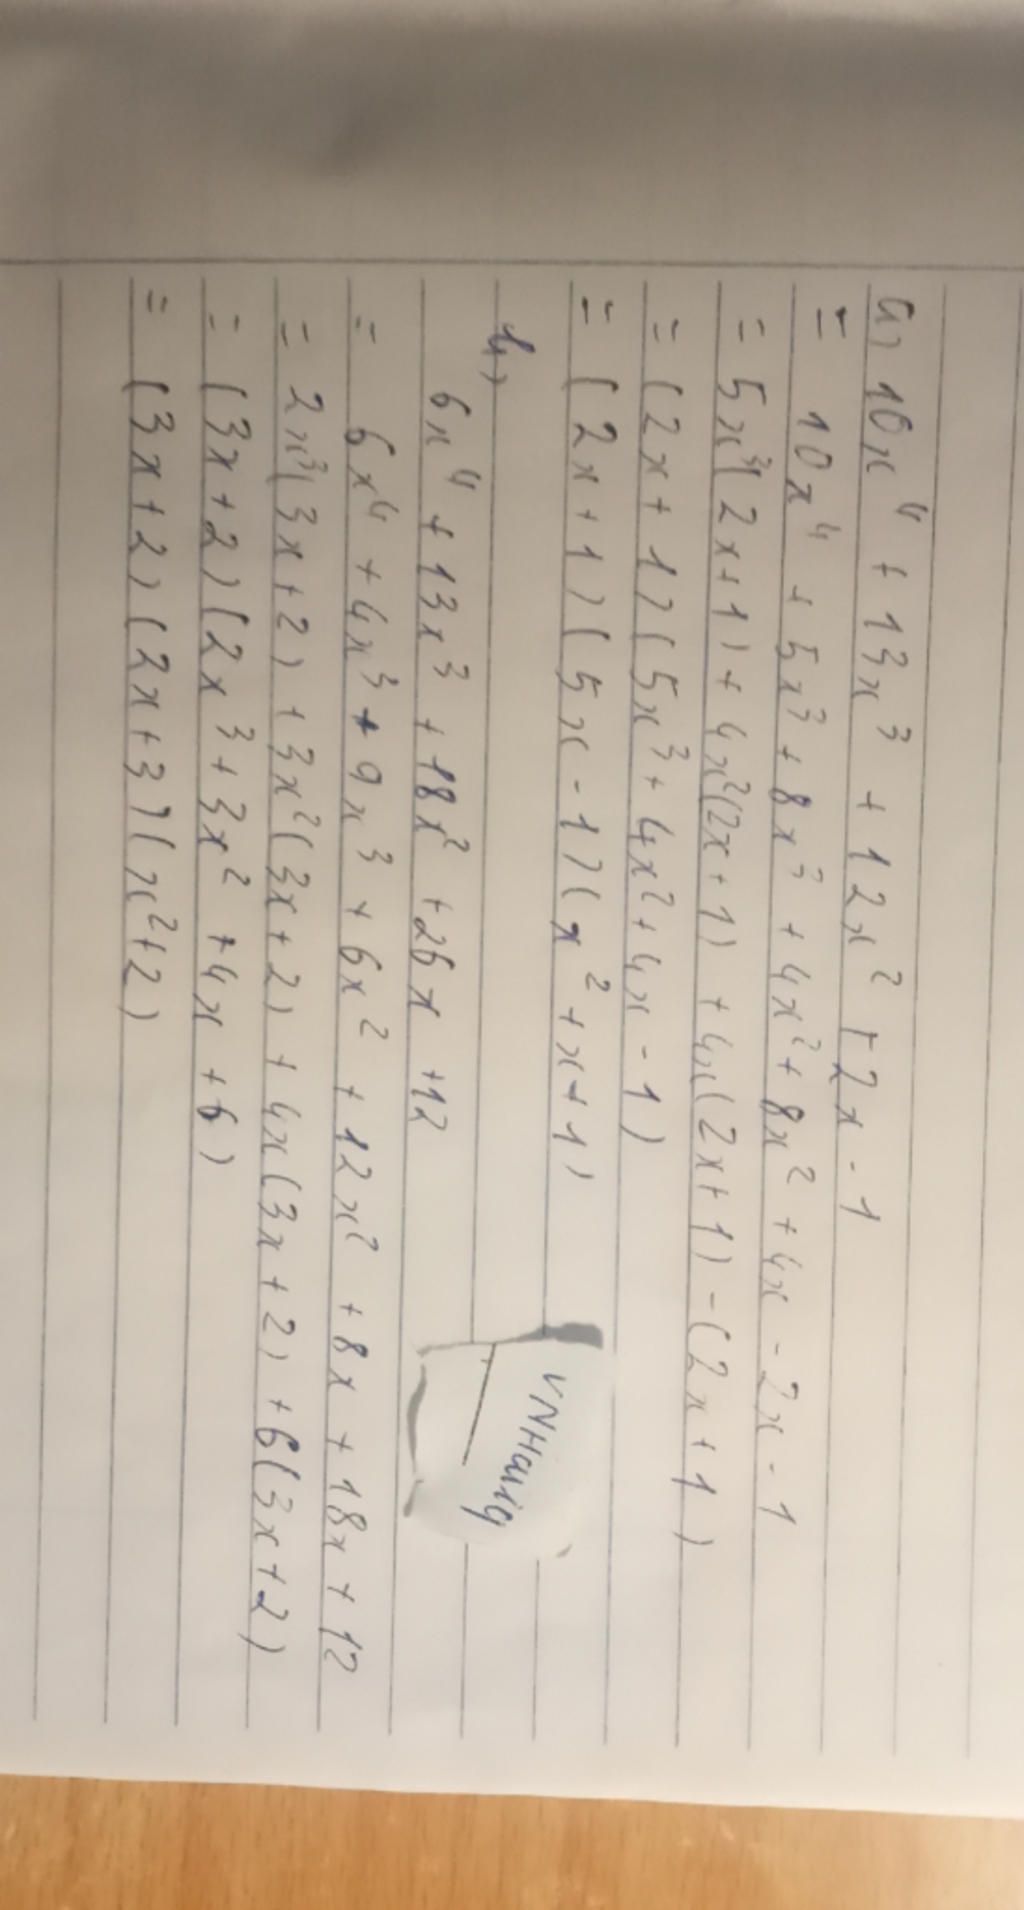 a, 10x⁴ + 13x³ + 12x² + 2x - 1
= 10x⁴ + 5x³ + 8x³ + 4x² + 8x² + 4x - 2x - 1
= 5x³(2x+1) + 4x²(2x+1) + 4x(2x+1) - (2x+1)
= (2x+1)(5x³ + 4x² + 4x - 1)
= (2x+1)(5x-1)(x²+x+1)
b,
6x⁴ + 13x³ + 18x² + 26x + 12
= 6x⁴ + 4x³ + 9x³ + 6x² + 12x² + 8x + 18x + 12
= 2x³(3x+2) + 3x²(3x+2) + 4x(3x+2) + 6(3x+2)
= (3x+2)(2x³ + 3x² + 4x + 6)
= (3x+2)(2x+3)(x²+2)